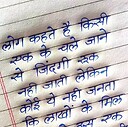 लोग कहते हैं किसी
एक के चले जाने
से जिंदगी रुक
नहीं जाती लेकिन
कोई ये नहीं जनता
कि लाखों के मिल
उस एक